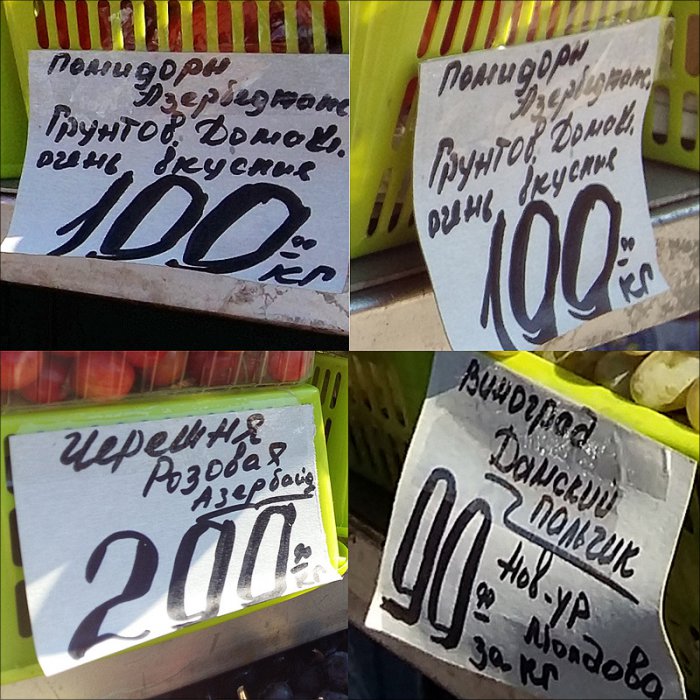 помидоры
Азербеджанс.
Грунтов. Домаш.
очень вкусние
100.00
кг
помидоры
Азербеджанс.
Грунтов. Домаш.
очень вкусние
100.00
кг
Черешня
Розовая
Азербайд
200.00
кг
Виноград
Дамский
пальчик
90.00
Нов-ур
Молдова
за кг